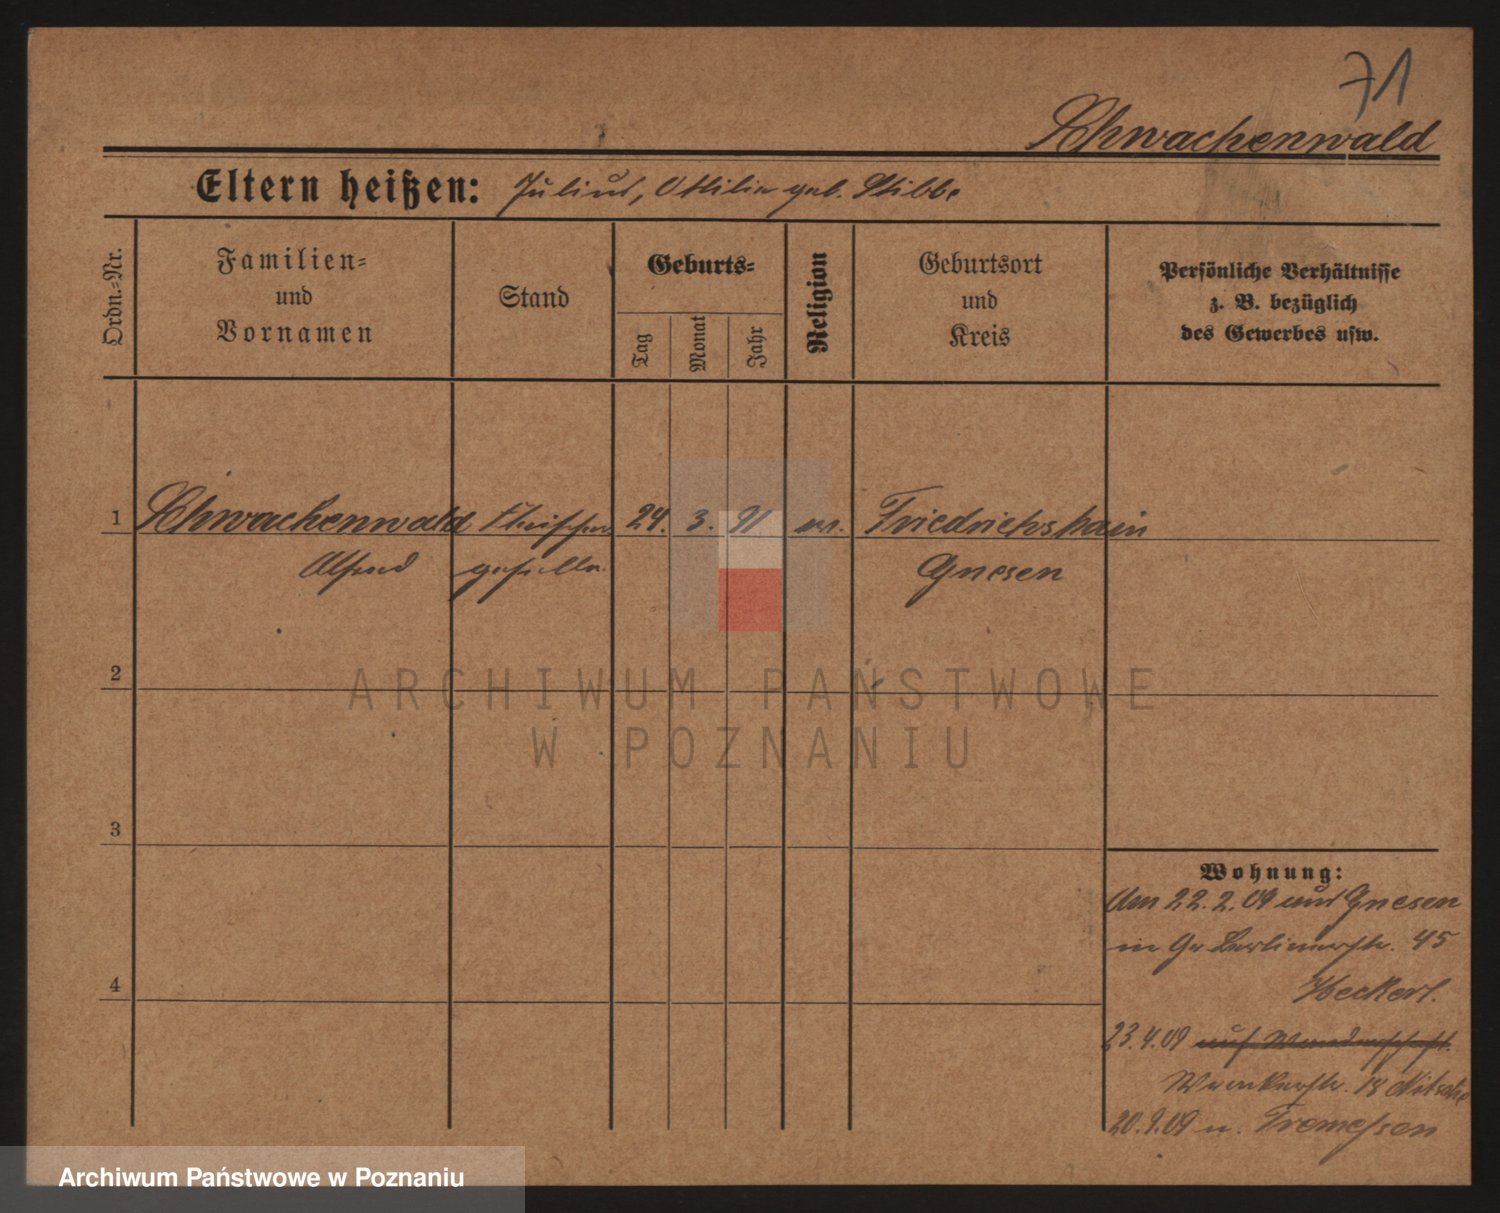 71
Schwachenwald
Eltern heißen: Julius, Ottilie geb. Stibbe
Ordn.=Nr.
Familien=
und
Vornamen
Stand
Geburts=
Tag
Monat
Jahr
Religion
Geburtsort
und
Kreis
Persönliche Verhältnisse
z. B. bezüglich
des Gewerbes usw.
1 Schwachenwald Fleischer 24. 3. 91 ev. Friedrichshain
Alfred geselle Gnesen
2
3
4
Wohnung:
Am 22.2.09 aus Gnesen
in Gr Berlinerstr. 45
Heckert.
23.4.09 auf Wanderschaft.
18 Nitsche
20.9.09 n. Tremessen
ARCHIWUM PAŃSTWOWE
W POZNANIU
Archiwum Państwowe w Poznaniu